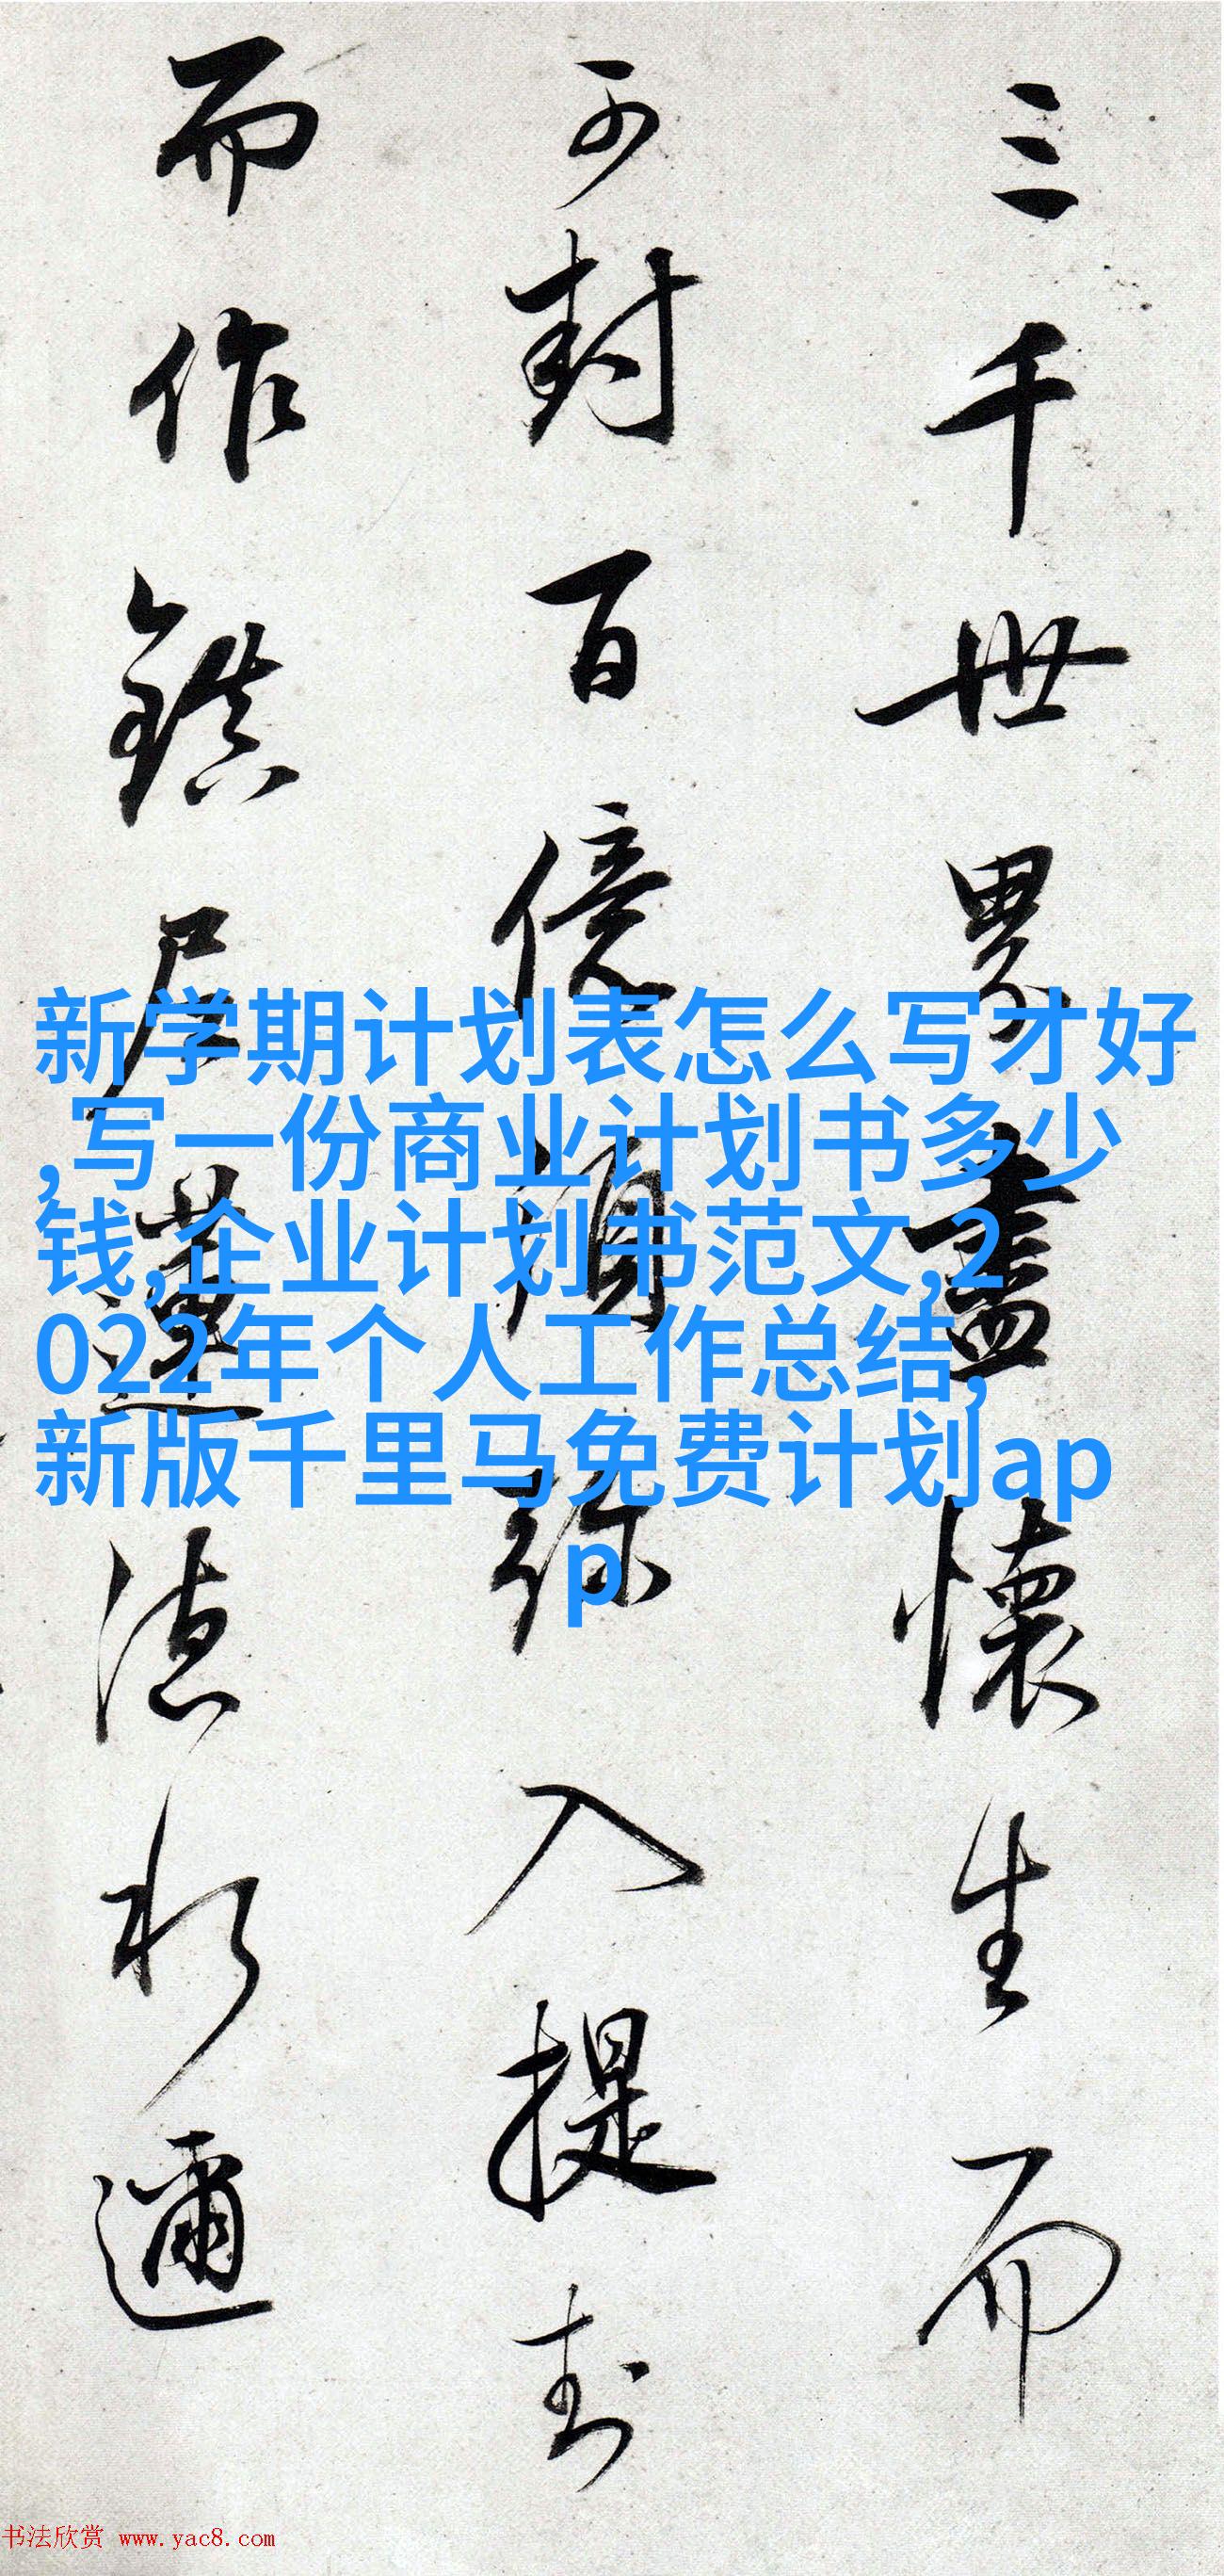 三千世界盡懷生而
可封百億須弥入提封
而作鎮尼蓮德水邇
新学期计划表怎么写才好
,写一份商业计划书多少
钱,企业计划书范文,2
022年个人工作总结,
新版千里马免费计划ap
p
书法欣赏 www.yac8.com